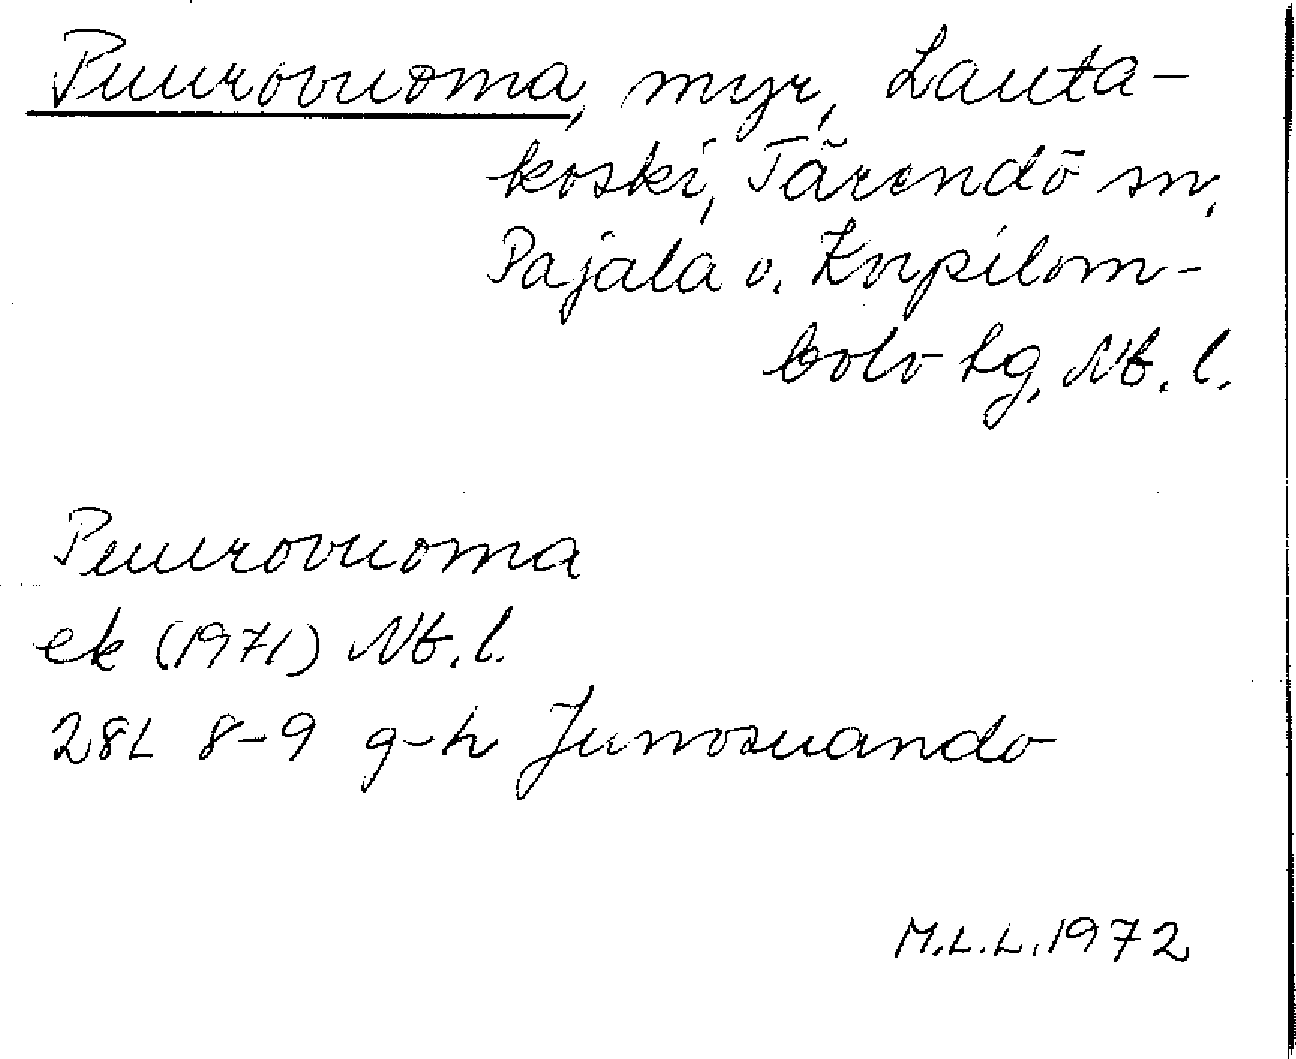 Puurovuoma, myr, Lauta-
koski, Tärendö sn,
Pajala o. Korpilom-
bolo tg, Nb. l.
Puurovuoma
ek (1971) Nb. l.
28L 8-9 g-h Junosuando
M.L.L. 1972